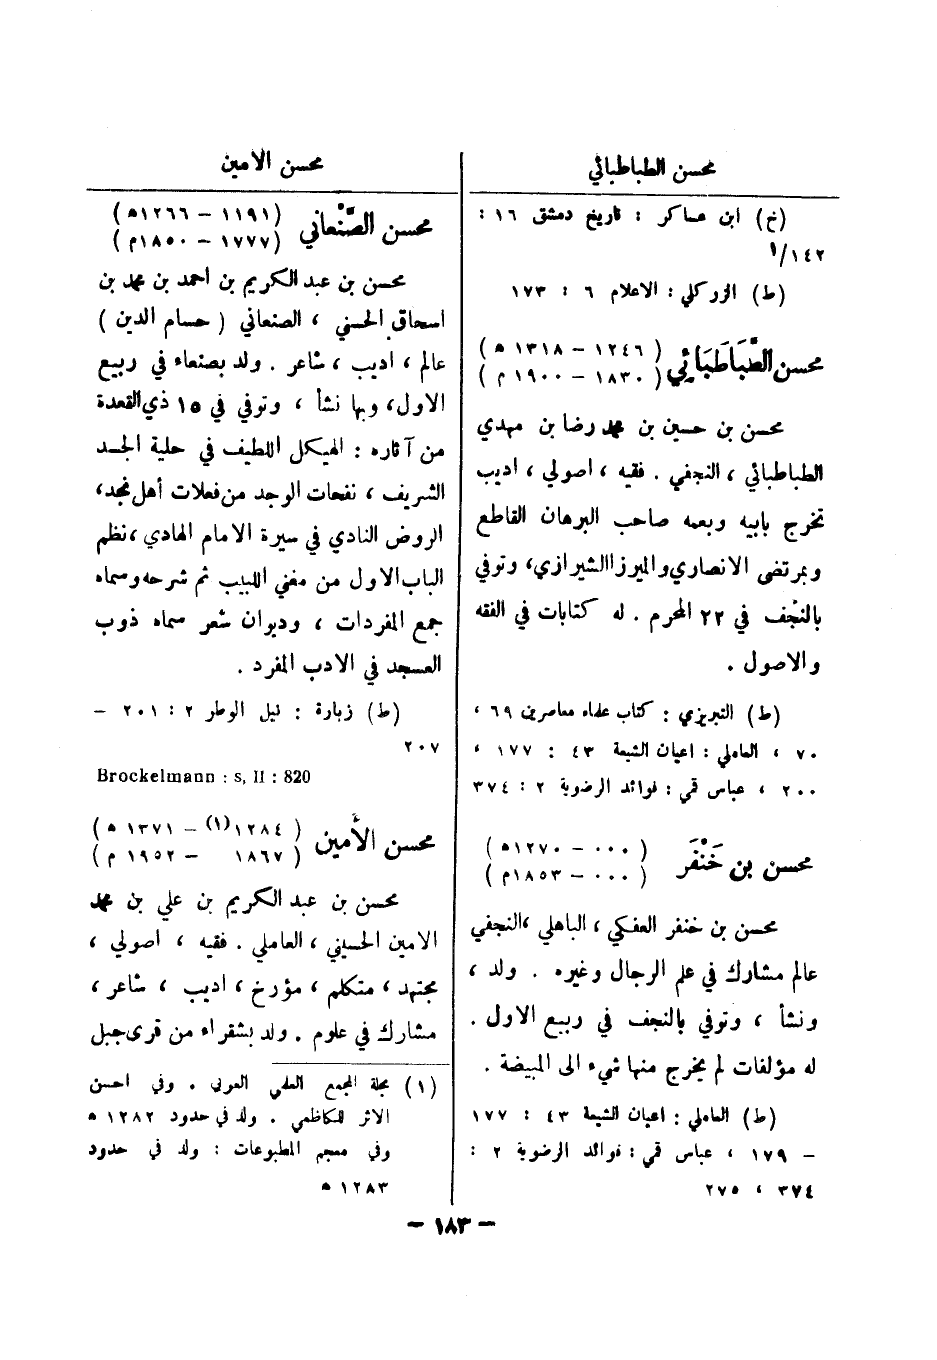 محسن الطباطبائي
(خ) ابن عساكر : تاريخ دمشق ١٦ :
١٤٢/١
(ط) الزركلي : الاعلام ٦ : ١٧٣
محسن الطَّبَاطَبَائِي
( ١٢٤٦ – ١٣١٨ ه )
( ١٨٣٠ – ١٩٠٠ م )
محسن بن حسين بن محمد رضا بن مهدي
الطباطبائي ، النجفي . فقيه ، اصولي ، اديب
تخرج بابيه وبعمه صاحب البرهان القاطع
وبمرتضى الانصاري والميرزا الشيرازي، وتوفي
بالنجف في ٢٢ المحرم . له كتابات في الفقه
والاصول .
(ط) التبريزي : كتاب علماء معاصرين ٦٩ ،
٧٠ ، العاملي : اعيان الشيعة ٤٣ : ١٧٧ ،
٢٠٠ ، عباس قمي : فوائد الرضوية ٢ : ٣٧٤
محسن بن خَنْفَر
( ٠٠٠ – ١٢٧٠ه )
( ٠٠٠ – ١٨٥٣م )
محسن بن خنفر العفكي ، الباهلي ،النجفي
عالم مشارك في علم الرجال وغيره . ولد ،
ونشأ ، وتوفي بالنجف في ربيع الاول .
له مؤلفات لم يخرج منها شيء الى المبيضة .
(ط) العاملي : اعيان الشيعة ٤٣ : ١٧٧
– ١٧٩ ، عباس قمي : فوائد الرضوية ٢ :
٣٧٤ ، ٢٧٥
محسن الامين
محسن الصَّنْعاني
(١١٩١ – ١٢٦٦ه )
(١٧٧٧ – ١٨٥٠م )
محسن بن عبد الكريم بن احمد بن محمد بن
اسحاق الحسني ، الصنعاني ( حسام الدين )
عالم ، اديب ، شاعر . ولد بصنعاء في ربيع
الاول، وبها نشأ ، وتوفي في ١٥ ذي القعدة
من آثاره : الهيكل اللطيف في حلية الجسد
الشريف ، نفحات الوجد من فعلات أهل نجد،
الروض النادي في سيرة الامام الهادي ،نظم
الباب الاول من مغني اللبيب ثم شرحه وسماه
جمع المفردات ، وديوان شعر سماه ذوب
العسجد في الادب المفرد .
(ط) زبارة : نيل الوطر ٢ : ٢٠١ –
٢٠٧
Brockelmann : s, II : 820
محسن الأمين
( ١٢٨٤(١) – ١٣٧١ ه )
( ١٨٦٧ – ١٩٥٢ م )
محسن بن عبد الكريم بن علي بن محمد
الامين الحسيني ، العاملي . فقيه ، اصولي ،
مجتهد ، متكلم ، مؤرخ ، اديب ، شاعر ،
مشارك في علوم . ولد بشقراء من قرى جبل
(١) مجلة المجمع العلمي العربي . وفي احسن
الاثر للكاظمي . ولد في حدود ١٢٨٢ ه
وفي معجم المطبوعات : ولد في حدود
١٢٨٣ ه
– ١٨٣ –